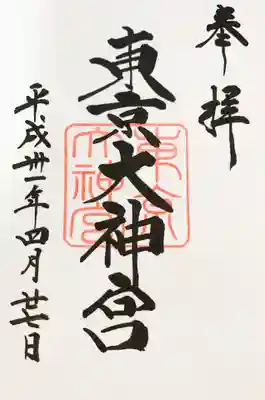 奉拝
東京大神宮
平成卅一年四月廿七日
東京大神宮